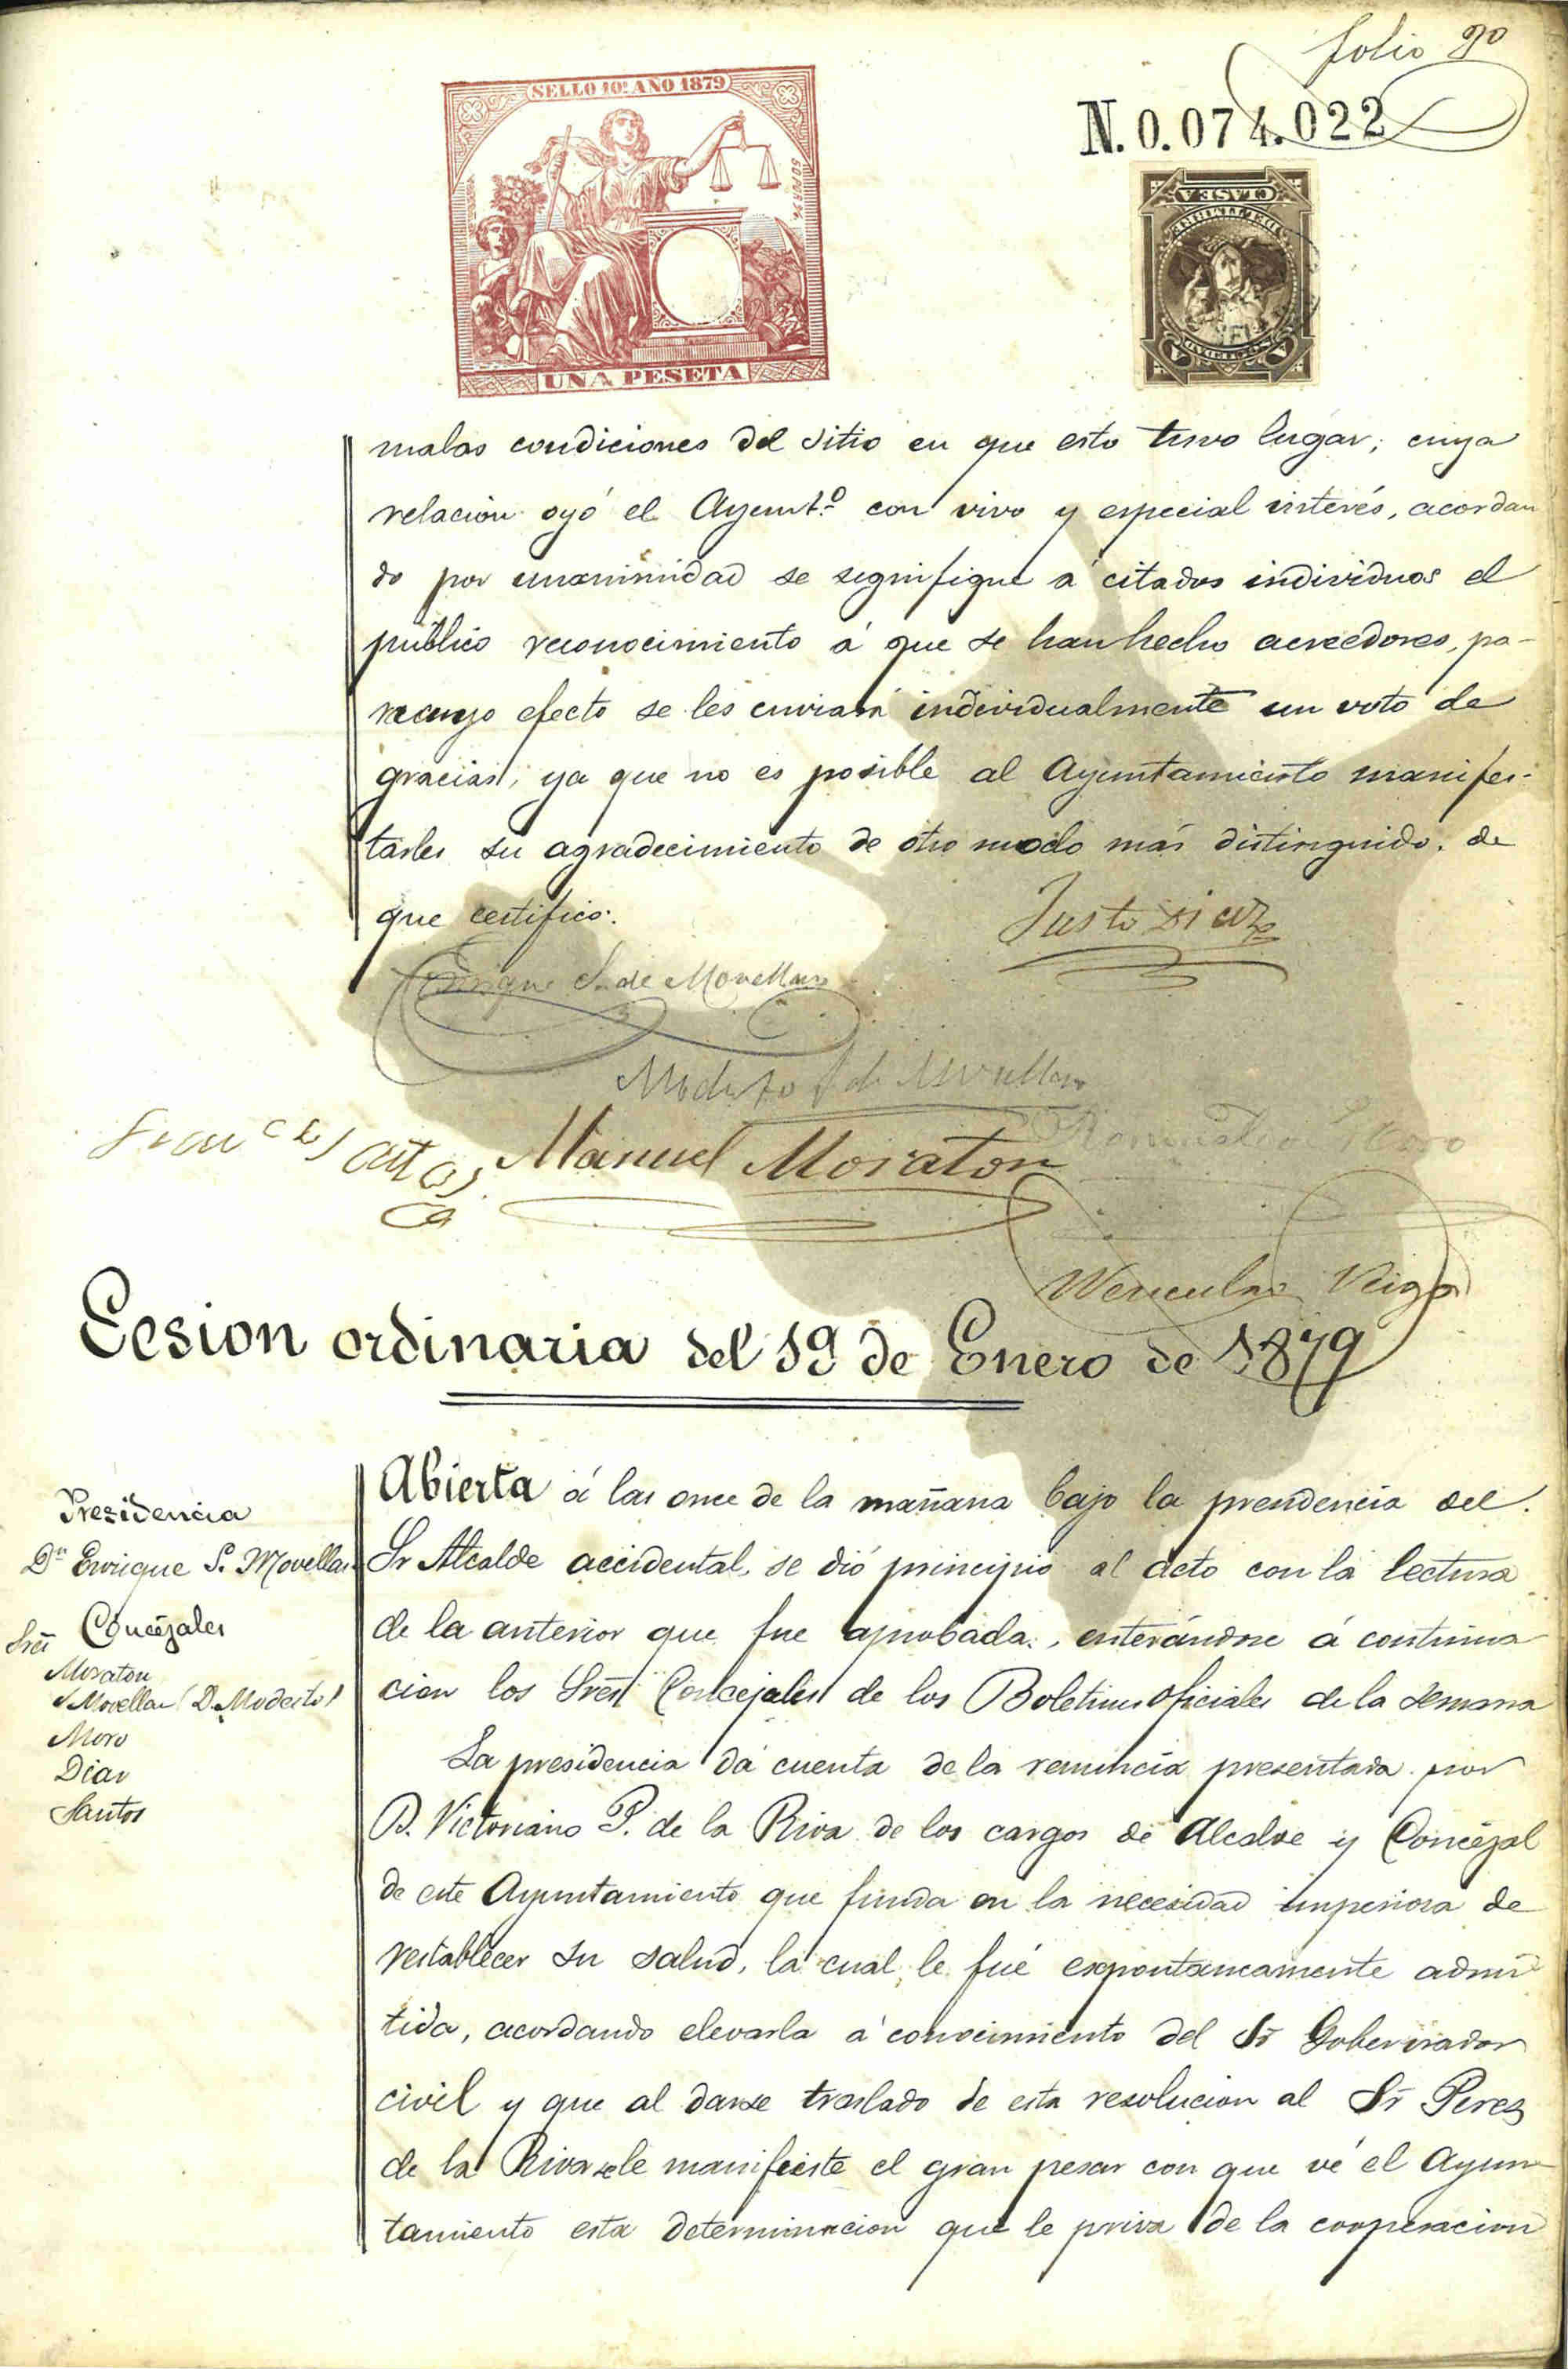 folio 90
SELLO 10º AÑO 1879
N.0.074.022
CLASE A
UNA PESETA
malas condiciones del sitio en que esto tuvo lugar; cuya
relacion oyó el Ayumt.º con vivo y especial interés, acordan
do por unanimidad se signifique á citados individuos el
público reconocimiento á que se han hecho acreedores, pa-
ra cuyo efecto se les enviará individualmente un voto de
gracias, ya que no es posible al Ayuntamiento manifes-
tarles su agradecimiento de otro modo más distinguido. de
que certifico.
Justo Diaz
Enrique S. de Movellan
Modesto S. de Movellan
Santos
Manuel Moraton
Romualdo Moro
Wenceslao Riga
Sesion ordinaria del 19 de Enero de 1879
Presidencia
Dn Enrique S. Movellan
Sres Concejales
Moraton
S. Movellan (D. Modesto)
Moro
Diaz
Santos
Abierta á las once de la mañana bajo la presidencia del
Sr Alcalde accidental, se dió principio al acto con la lectura
de la anterior que fue aprobada, enterándose á continua
cion los Sres Concejales de los Boletines oficiales de la semana
La presidencia dá cuenta de la renuncia presentada por
D. Victoriano P. de la Riva de los cargos de Alcalde y Concejal
de este Ayuntamiento que funda en la necesidad imperiosa de
restablecer su salud, la cual le fué expontaneamente admi
tida, acordando elevarla á conocimiento del Sr Gobernador
civil y que al darse traslado de esta resolucion al Sr Perez
de la Riva se le manifieste el gran pesar con que vé el Ayun
tamiento esta determinacion que le priva de la cooperacion